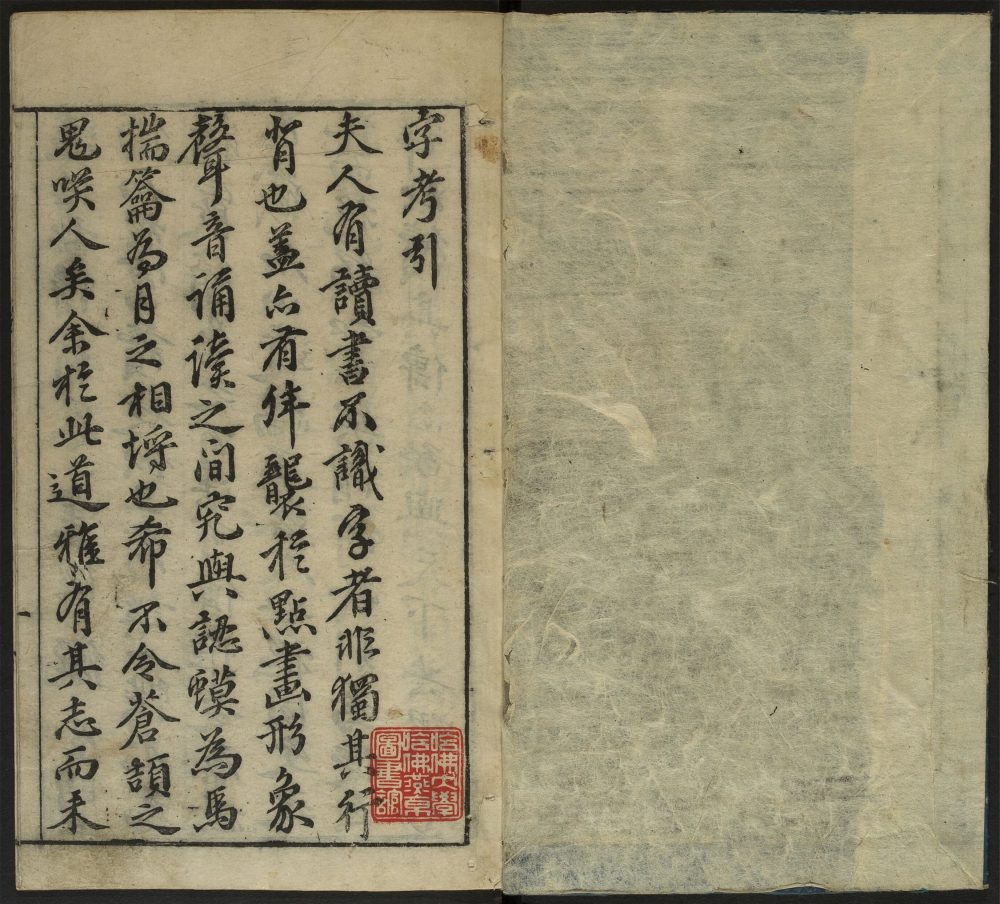 字考引
夫人有讀書不識字者非獨其行
背也盖亦有佯襲於點畫形象
聲音誦讀之間究與認蟆為馬
揣籥為日之相埒也希不令蒼頡之
鬼咲人矣余於此道雅有其志而未
哈佛大學
哈佛燕京
圖書館